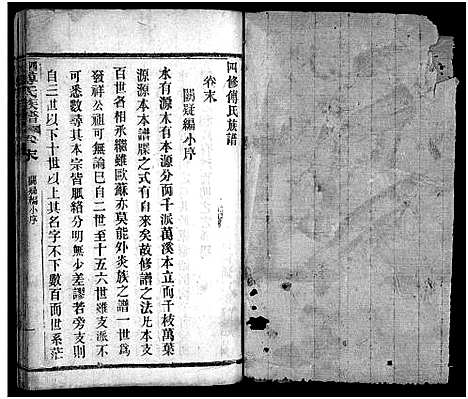 四修傅氏族譜
卷末
闕疑編小序
水有源木有本源分而千派萬溪本立而千枝萬葉
源源本本譜牒之式有自來矣故修譜之法凡本支
百世名相承繼雖歐蘇亦莫能外炎族之譜一世為
發祥公祖可無論巳自二世至十五六世雖支派不
可悉數尋其本宗皆脈絡分明無少差謬若旁支則
自三世以下十世以上其名字不下數百而世系茫
氏族譜
卷末
闕疑編小序
一